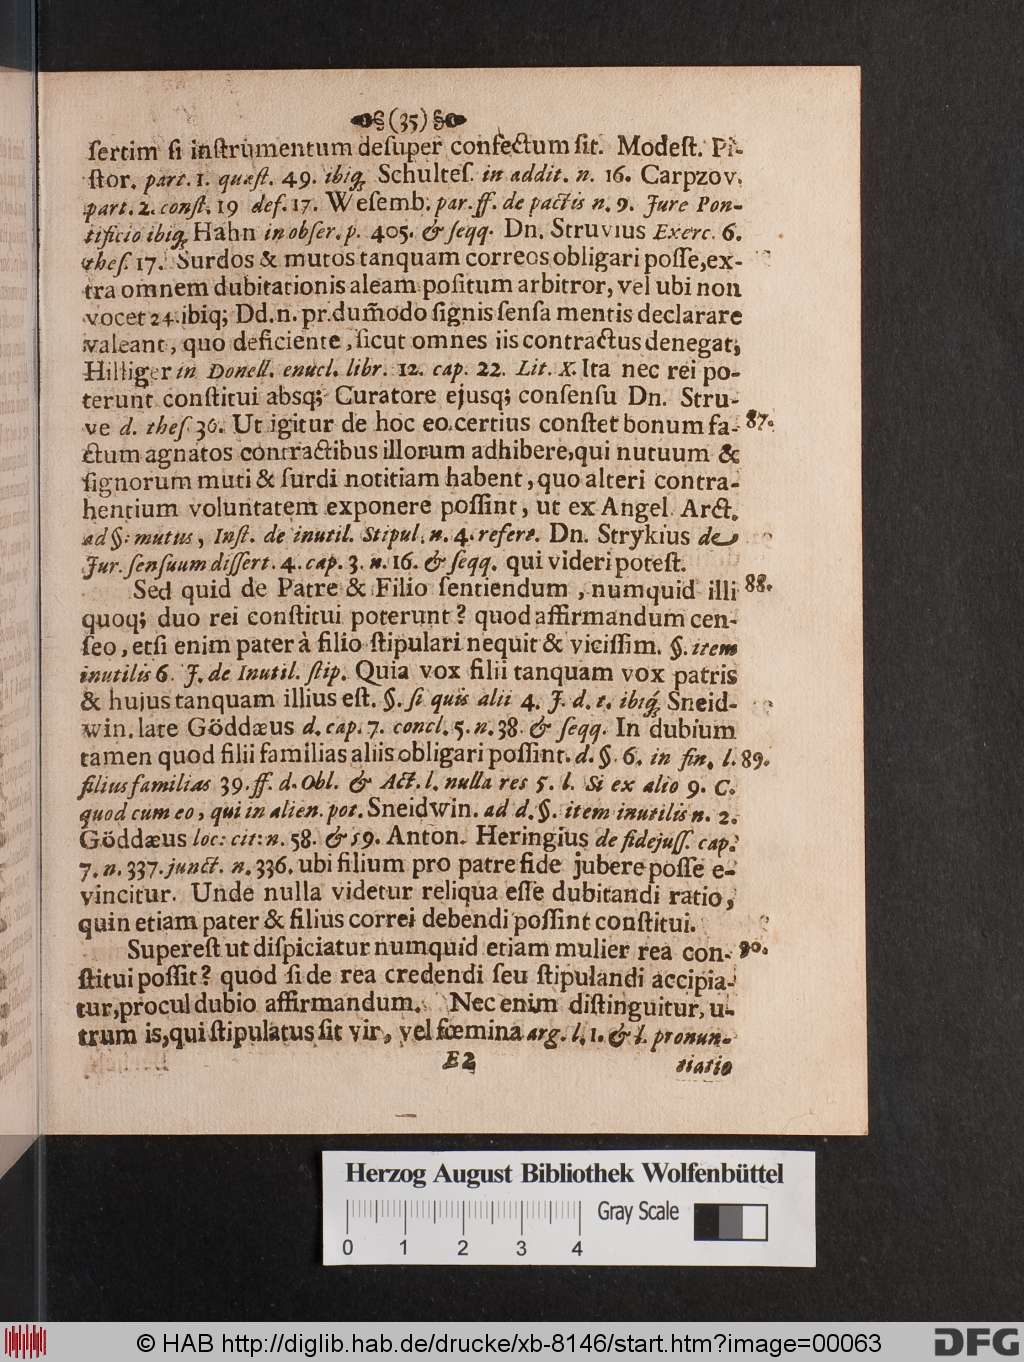 (35)
ſertim ſi inſtrumentum deſuper confectum ſit. Modeſt. Pi-
ſtor. part. 1. quæſt. 49. ibiq; Schulteſ. in addit. n. 16. Carpzov.
part. 2. conſt. 19 def. 17. Weſemb. par. ff. de pactis n. 9. Jure Pon-
tificio ibiq; Hahn in obſer. p. 405. & ſeqq. Dn. Struvius Exerc. 6.
theſ. 17. Surdos & mutos tanquam correos obligari poſſe, ex-
tra omnem dubitationis aleam poſitum arbitror, vel ubi non
vocet 24. ibiq; Dd. n. pr. dum̃odo ſignis ſenſa mentis declarare
valeant, quo deficiente, ſicut omnes iis contractus denegat;
Hilliger in Donell. enucl. libr. 12. cap. 22. Lit. X. Ita nec rei po-
terunt conſtitui absq; Curatore ejusq; conſenſu Dn. Stru-
ve d. theſ 30. Ut igitur de hoc eo certius conſtet bonum fa- 87.
ctum agnatos contractibus illorum adhibere, qui nutuum &
ſignorum muti & ſurdi notitiam habent, quo alteri contra-
hentium voluntatem exponere poſſint, ut ex Angel. Arct.
ad §: mutus, Inſt. de inutil. Stipul. n. 4. refert. Dn. Strykius de
Jur. ſenſuum diſſert. 4. cap. 3. n. 16. & ſeqq. qui videri poteſt.
Sed quid de Patre & Filio ſentiendum, numquid illi 88.
quoq; duo rei conſtitui poterunt? quod affirmandum cen-
ſeo, etſi enim pater à filio ſtipulari nequit & viciſſim. §. item
inutilis 6. J. de Inutil. ſtip. Quia vox filii tanquam vox patris
& hujus tanquam illius eſt. §. ſi quis alii 4. J. d. t. ibiq; Sneid-
win. late Göddæus d. cap. 7. concl. 5. n. 38. & ſeqq. In dubium
tamen quod filii familias aliis obligari poſſint. d. §. 6. in fin. l. 89.
filius familias 39. ff. d. Obl. & Act. l. nulla res 5. l. Si ex alio 9. C.
quod cum eo, qui in alien. pot. Sneidwin. ad d. §. item inutilis n. 2.
Göddæus loc: cit: n. 58. & 59. Anton. Heringius de fidejuſſ. cap.
7. n. 337. junct. n. 336. ubi filium pro patre fide jubere poſſe e-
vincitur. Unde nulla videtur reliqua eſſe dubitandi ratio,
quin etiam pater & filius correi debendi poſſint conſtitui.
Supereſt ut diſpiciatur numquid etiam mulier rea con- 90.
ſtitui poſſit? quod ſi de rea credendi ſeu ſtipulandi accipia-
tur, procul dubio affirmandum. Nec enim diſtinguitur, u-
trum is, qui ſtipulatus ſit vir, vel fœmina arg. l. 1. & l. pronun-
E 2 tiatio
Herzog August Bibliothek Wolfenbüttel
Gray Scale
0 1 2 3 4
© HAB http://diglib.hab.de/drucke/xb-8146/start.htm?image=00063
DFG